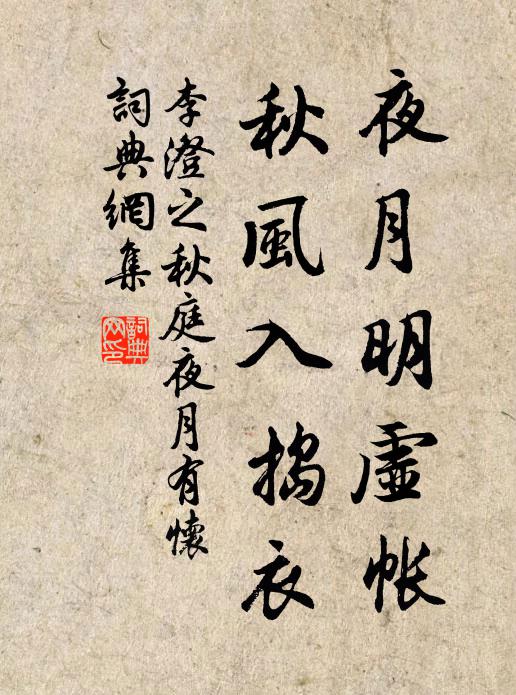 夜月明虛帳
秋風入搗衣
李澄之秋庭夜月有懷
詞典網集
詞典網印